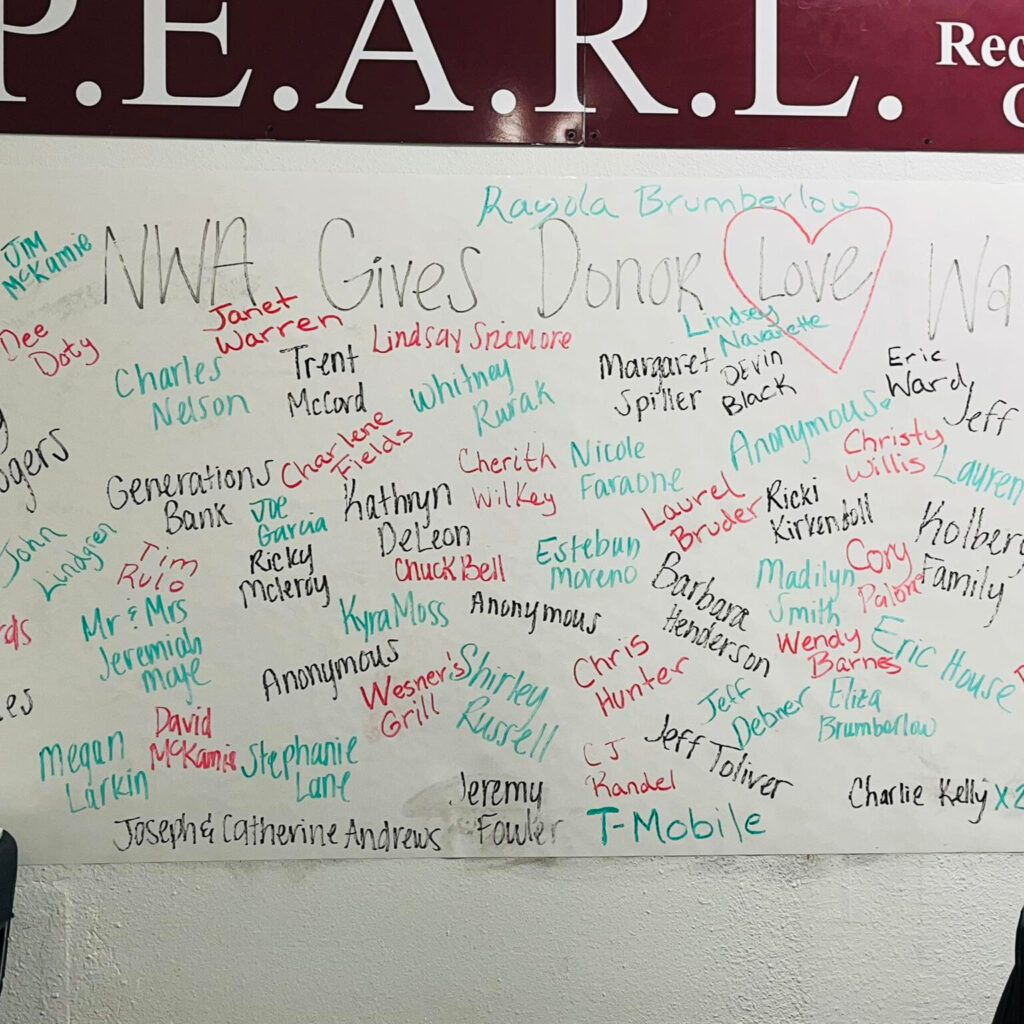 P.E.A.R.L.
Rayola Brumberlow
JIM
McKamie
NWA Gives Donor Love Wa
Dee
Doty
Janet
Warren
Lindsay Sizemore
Lindsey
Navarette
Charles
Nelson
Trent
McCord
Whitney
Rurak
Margaret
Spiller
Devin
Black
Eric
Ward
Jeff
Anonymous
Christy
Willis
Lauren
Generations
Bank
Charlene
Fields
Cherith
Wilkey
Nicole
Faraone
Joe
Garcia
Kathryn
DeLeon
Laurel
Bruder
Ricki
Kirkendoll
Kolberg
Family
John
Lindgren
Tim
Rulo
Ricky
McLeroy
Chuck Bell
Esteban
Moreno
Barbara
Henderson
Madilyn
Smith
Cory
Mr & Mrs
Jeremiah
Maye
Kyra Moss
Anonymous
Wendy
Barnes
Eric House
Anonymous
Wesner's
Grill
Shirley
Russell
Chris
Hunter
Jeff
Debner
Eliza
Brumberlow
Megan
Larkin
David
McKamie
Stephanie
Lane
CJ
Randel
Jeff Toliver
Jeremy
Fowler
Charlie Kelly x2
Joseph & Catherine Andrews
T-Mobile